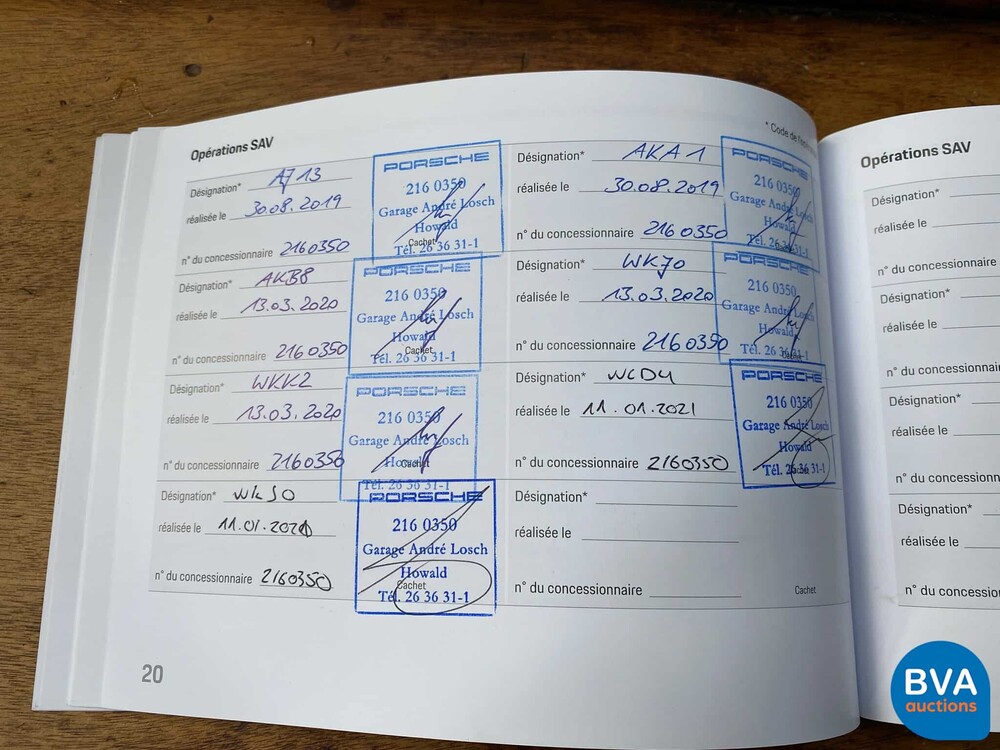 Opérations SAV
* Code de
Désignation* AJ13
réalisée le 30.08.2019
n° du concessionnaire 2160350
PORSCHE
216 0350
Garage André Losch
Howald
Cachet
Tél. 26 36 31-1
Désignation* AKA1
réalisée le 30.08.2019
n° du concessionnaire 2160350
PORSCHE
216 0350
Garage André Losch
Howald
Tél. 26 36 31-1
Désignation* AKB8
réalisée le 13.03.2020
n° du concessionnaire 2160350
PORSCHE
216 0350
Garage André Losch
Howald
Cachet
Tél. 26 36 31-1
Désignation* WKJ0
réalisée le 13.03.2020
n° du concessionnaire 2160350
PORSCHE
216 0350
Garage André Losch
Howald
Tél. 26 36 31-1
Désignation* WKK2
réalisée le 13.03.2020
n° du concessionnaire 2160350
PORSCHE
216 0350
Garage André Losch
Howald
Cachet
Tél. 26 36 31-1
Désignation* WLD4
réalisée le 11.01.2021
n° du concessionnaire 2160350
PORSCHE
216 0350
Garage André Losch
Howald
Tél. 26 36 31-1
Désignation* WKJ0
réalisée le 11.01.2021
n° du concessionnaire 2160350
PORSCHE
216 0350
Garage André Losch
Howald
Cachet
Tél. 26 36 31-1
Désignation*
réalisée le
n° du concessionnaire
Cachet
20
Opérations SAV
Désignation*
réalisée le
n° du concessionnaire
Désignation*
réalisée le
n° du concessionnair
Désignation*
réalisée le
n° du concessionn
Désignation*
réalisée le
n° du concessio
BVA
auctions